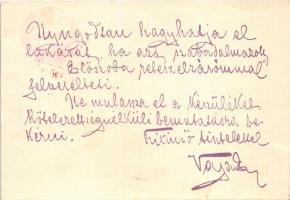 Nyugodtan hagyhatja el
lakását, ha azt szabadalmazott
Előszoba reteszelzárómmal
felszerelteti.
Ne mulassza el a készüléket
kötelezettségnélküli bemutatásra be-
kérni. Kitűnő tisztelettel